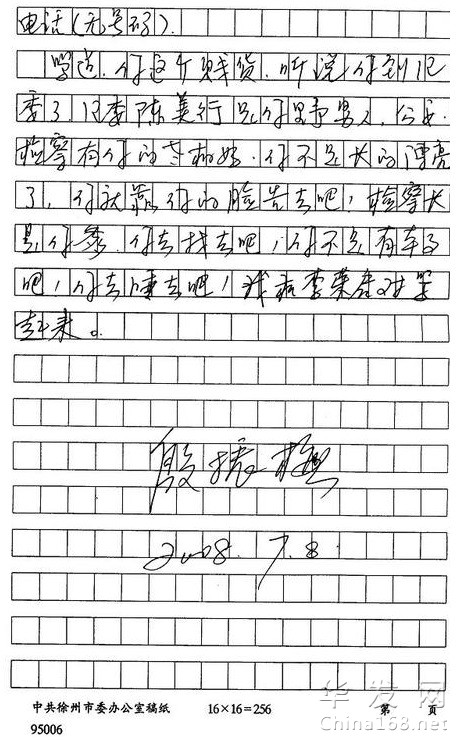 电话(无号码).
骂道,你这个贱货,听说你到纪
委了,纪委陈美行是你野男人,公安.
检察有你的老相好.你不是长的漂亮
了,你就靠你的脸告去吧!检察长
是你爹.你去找去吧!你不是有车子
吧!你去睡去吧!我和李荣启对骂
起来。
殷振
2008.7.8
中共徐州市委办公室稿纸 16×16=256 第 页
95006
华发网
China168.net